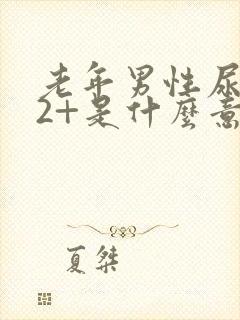 老年男性尿
2+是什麼意
夏桀